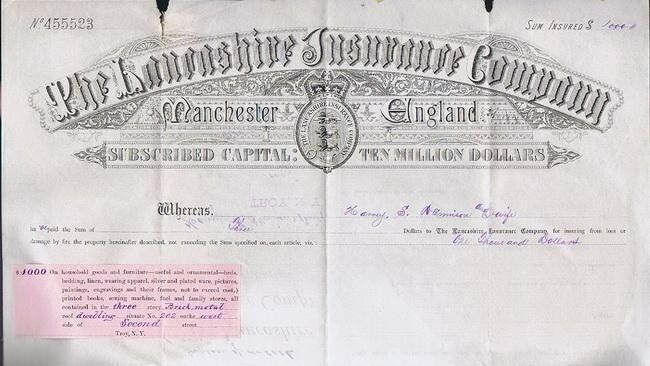 No 455523 SUM INSURED $ 1000.
The Lancashire Insurance Company
Manchester England
THE LANCASHIRE INSURANCE COMPANY
SUBSCRIBED CAPITAL: TEN MILLION DOLLARS
Whereas, Harry S. & Wife
paid the Sum of Three Dollars to The Lancashire Insurance Company for insuring from loss or
damage by fire the property hereinafter described, not exceeding the Sum specified on each article, viz: One Thousand Dollars
$1000 On household goods and furniture—useful and ornamental—beds,
bedding, linen, wearing apparel, silver and plated ware, pictures,
paintings, engravings and their frames, not to exceed cost,)
printed books, sewing machine, fuel and family stores, all
contained in the three story Brick metal
roof dwelling situate No. 202 on the west
side of Second street
Troy, N. Y.